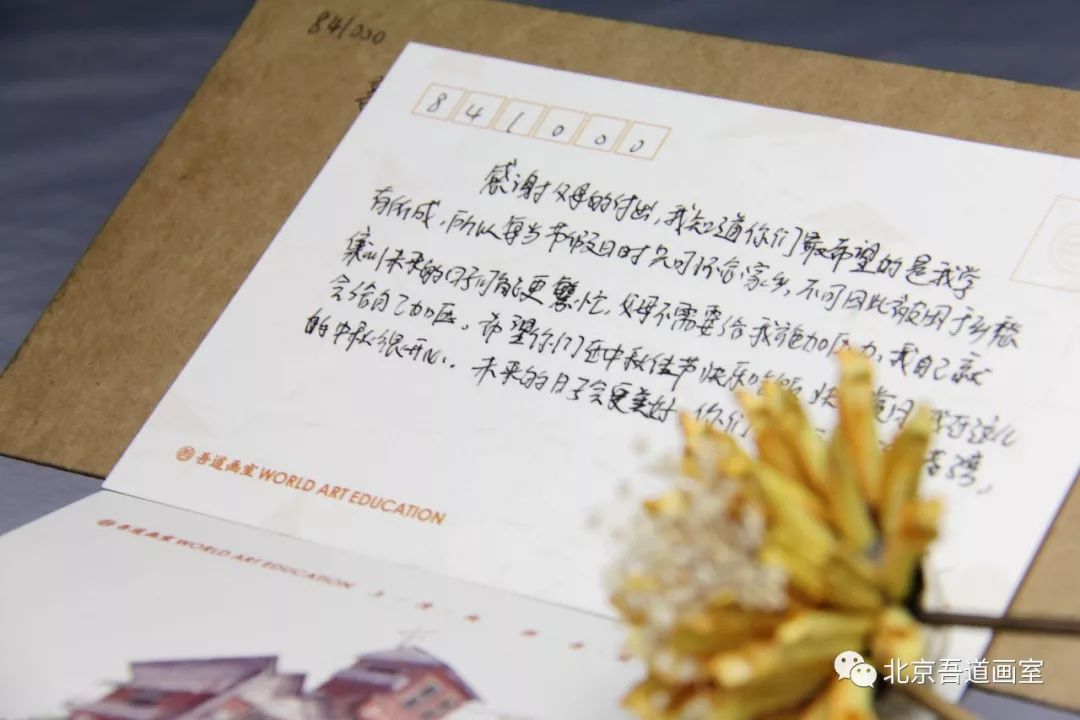 841000
841000
感谢父母的付出,我知道你们最希望的是我学
有所成,所以每当节假日时只可怀念家乡,不可因此被困于乡愁
未来的日子们更繁忙,父母不需要给我施加压力,我自己就
会给自己加压。希望你们在中秋佳节快乐 我在这儿
的中秋很开心。未来的日子会更美好 你们
吾道画室 WORLD ART EDUCATION
吾道画室 WORLD ART EDUCATION
北京吾道画室